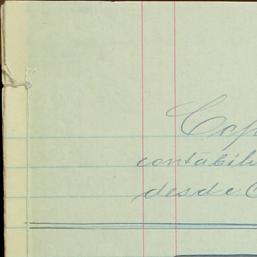 Cop
contabili
desde C